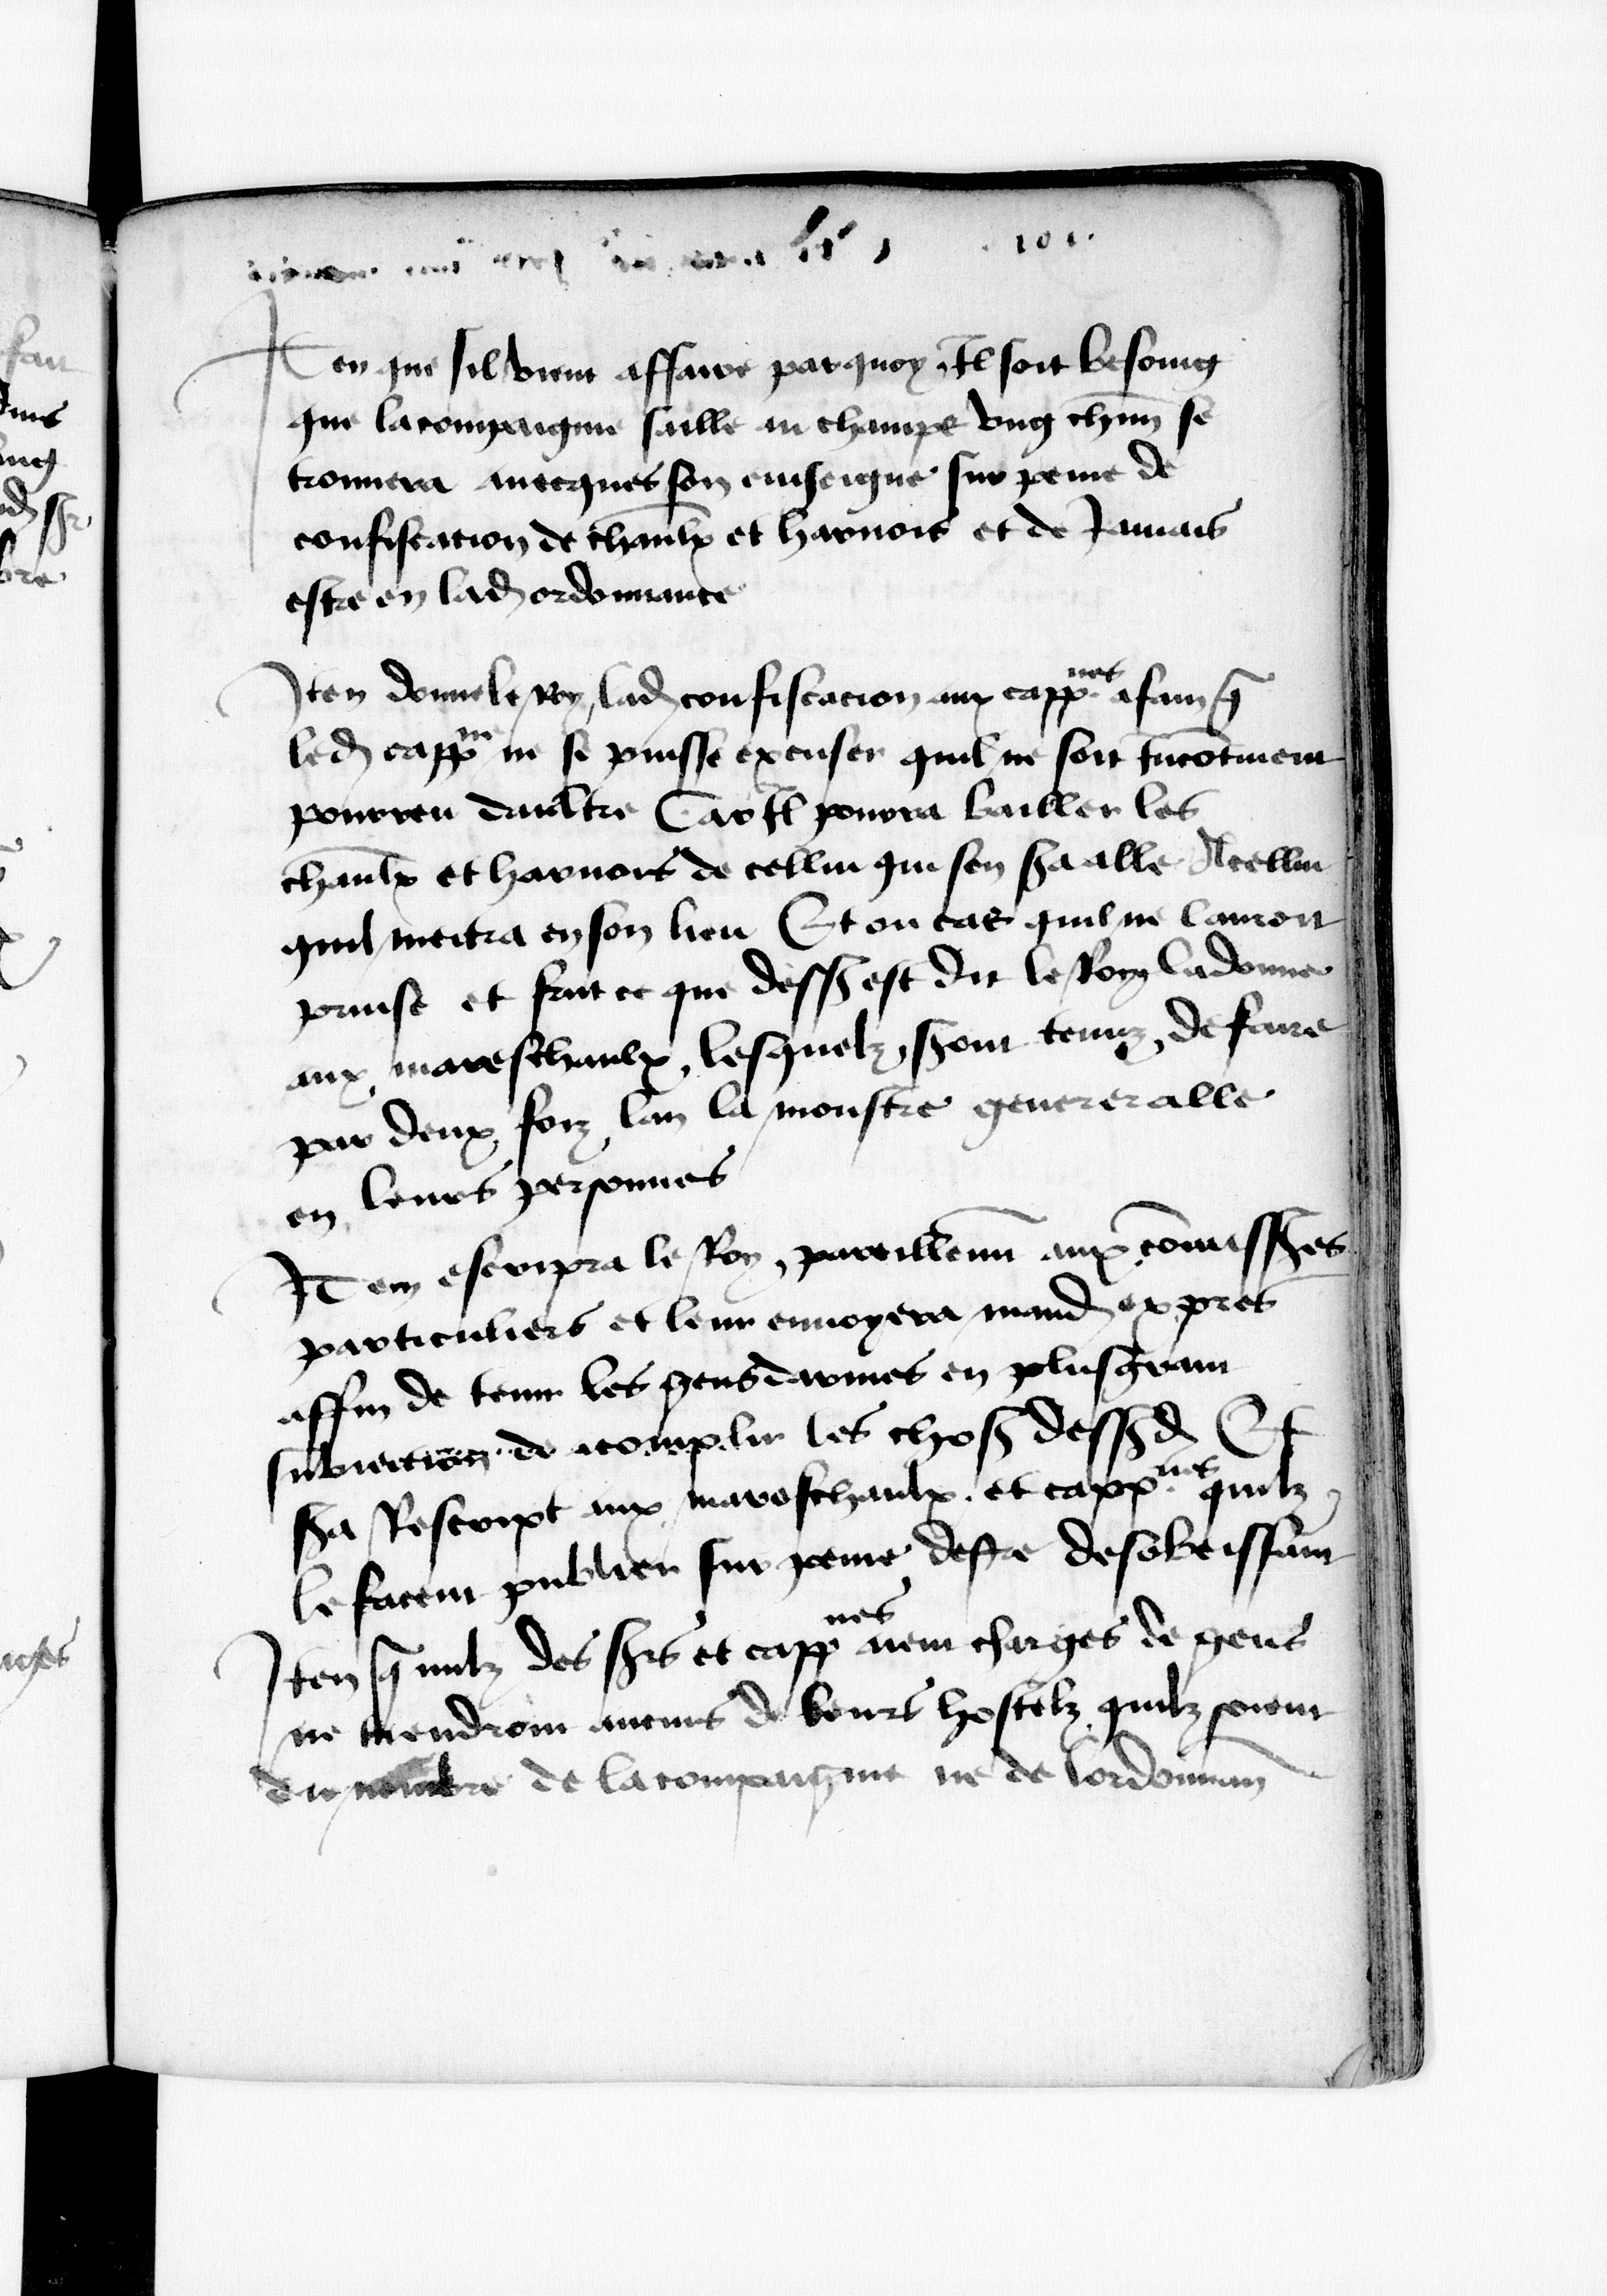 101.
Iten que sil vient affaire parquoy Il soit besoing
que lacompaignie saille au champs vng chūn se
trouuera auecques son enseigne sur peine de
confiscacion de chaulx et harnois et de Jamais
estre en lad ordonnance
Iten donne le Roy lad confiscacion aux cappnes afain q̄
led cappne ne se puisse excuser quil ne soit incōtinent
pourveu daultre Car Il pourra bailler les
chaulx et harnois de celluy qui sen sa alle A celluy
quil mectra en son lieu Et ou cas quil ne lauroit
prinse et fait ce que dess est dit le Roy la donne
aux mareschaulx lesquelz sont tenuz de faire
par deux foiz lan la monstre genereralle
en leurs personnes
ITem escripra le Roy pareillemn aux cōmissres
particuliers et leur enuoyera mand expres
affin de tenir les gensdarmes en plusgrant
subiection de acomplir les chos dessd Et
sa Rescript aux mareschaulx et cappnes quilz
le facent publier sur peine destre desobeissant
Iten q̄ nulz des srs et cappnes aient charges de gens
ne tiendroin aucuns de leurs hostelz quilz soient
du nombre de lacompaignie ne de lordonnan